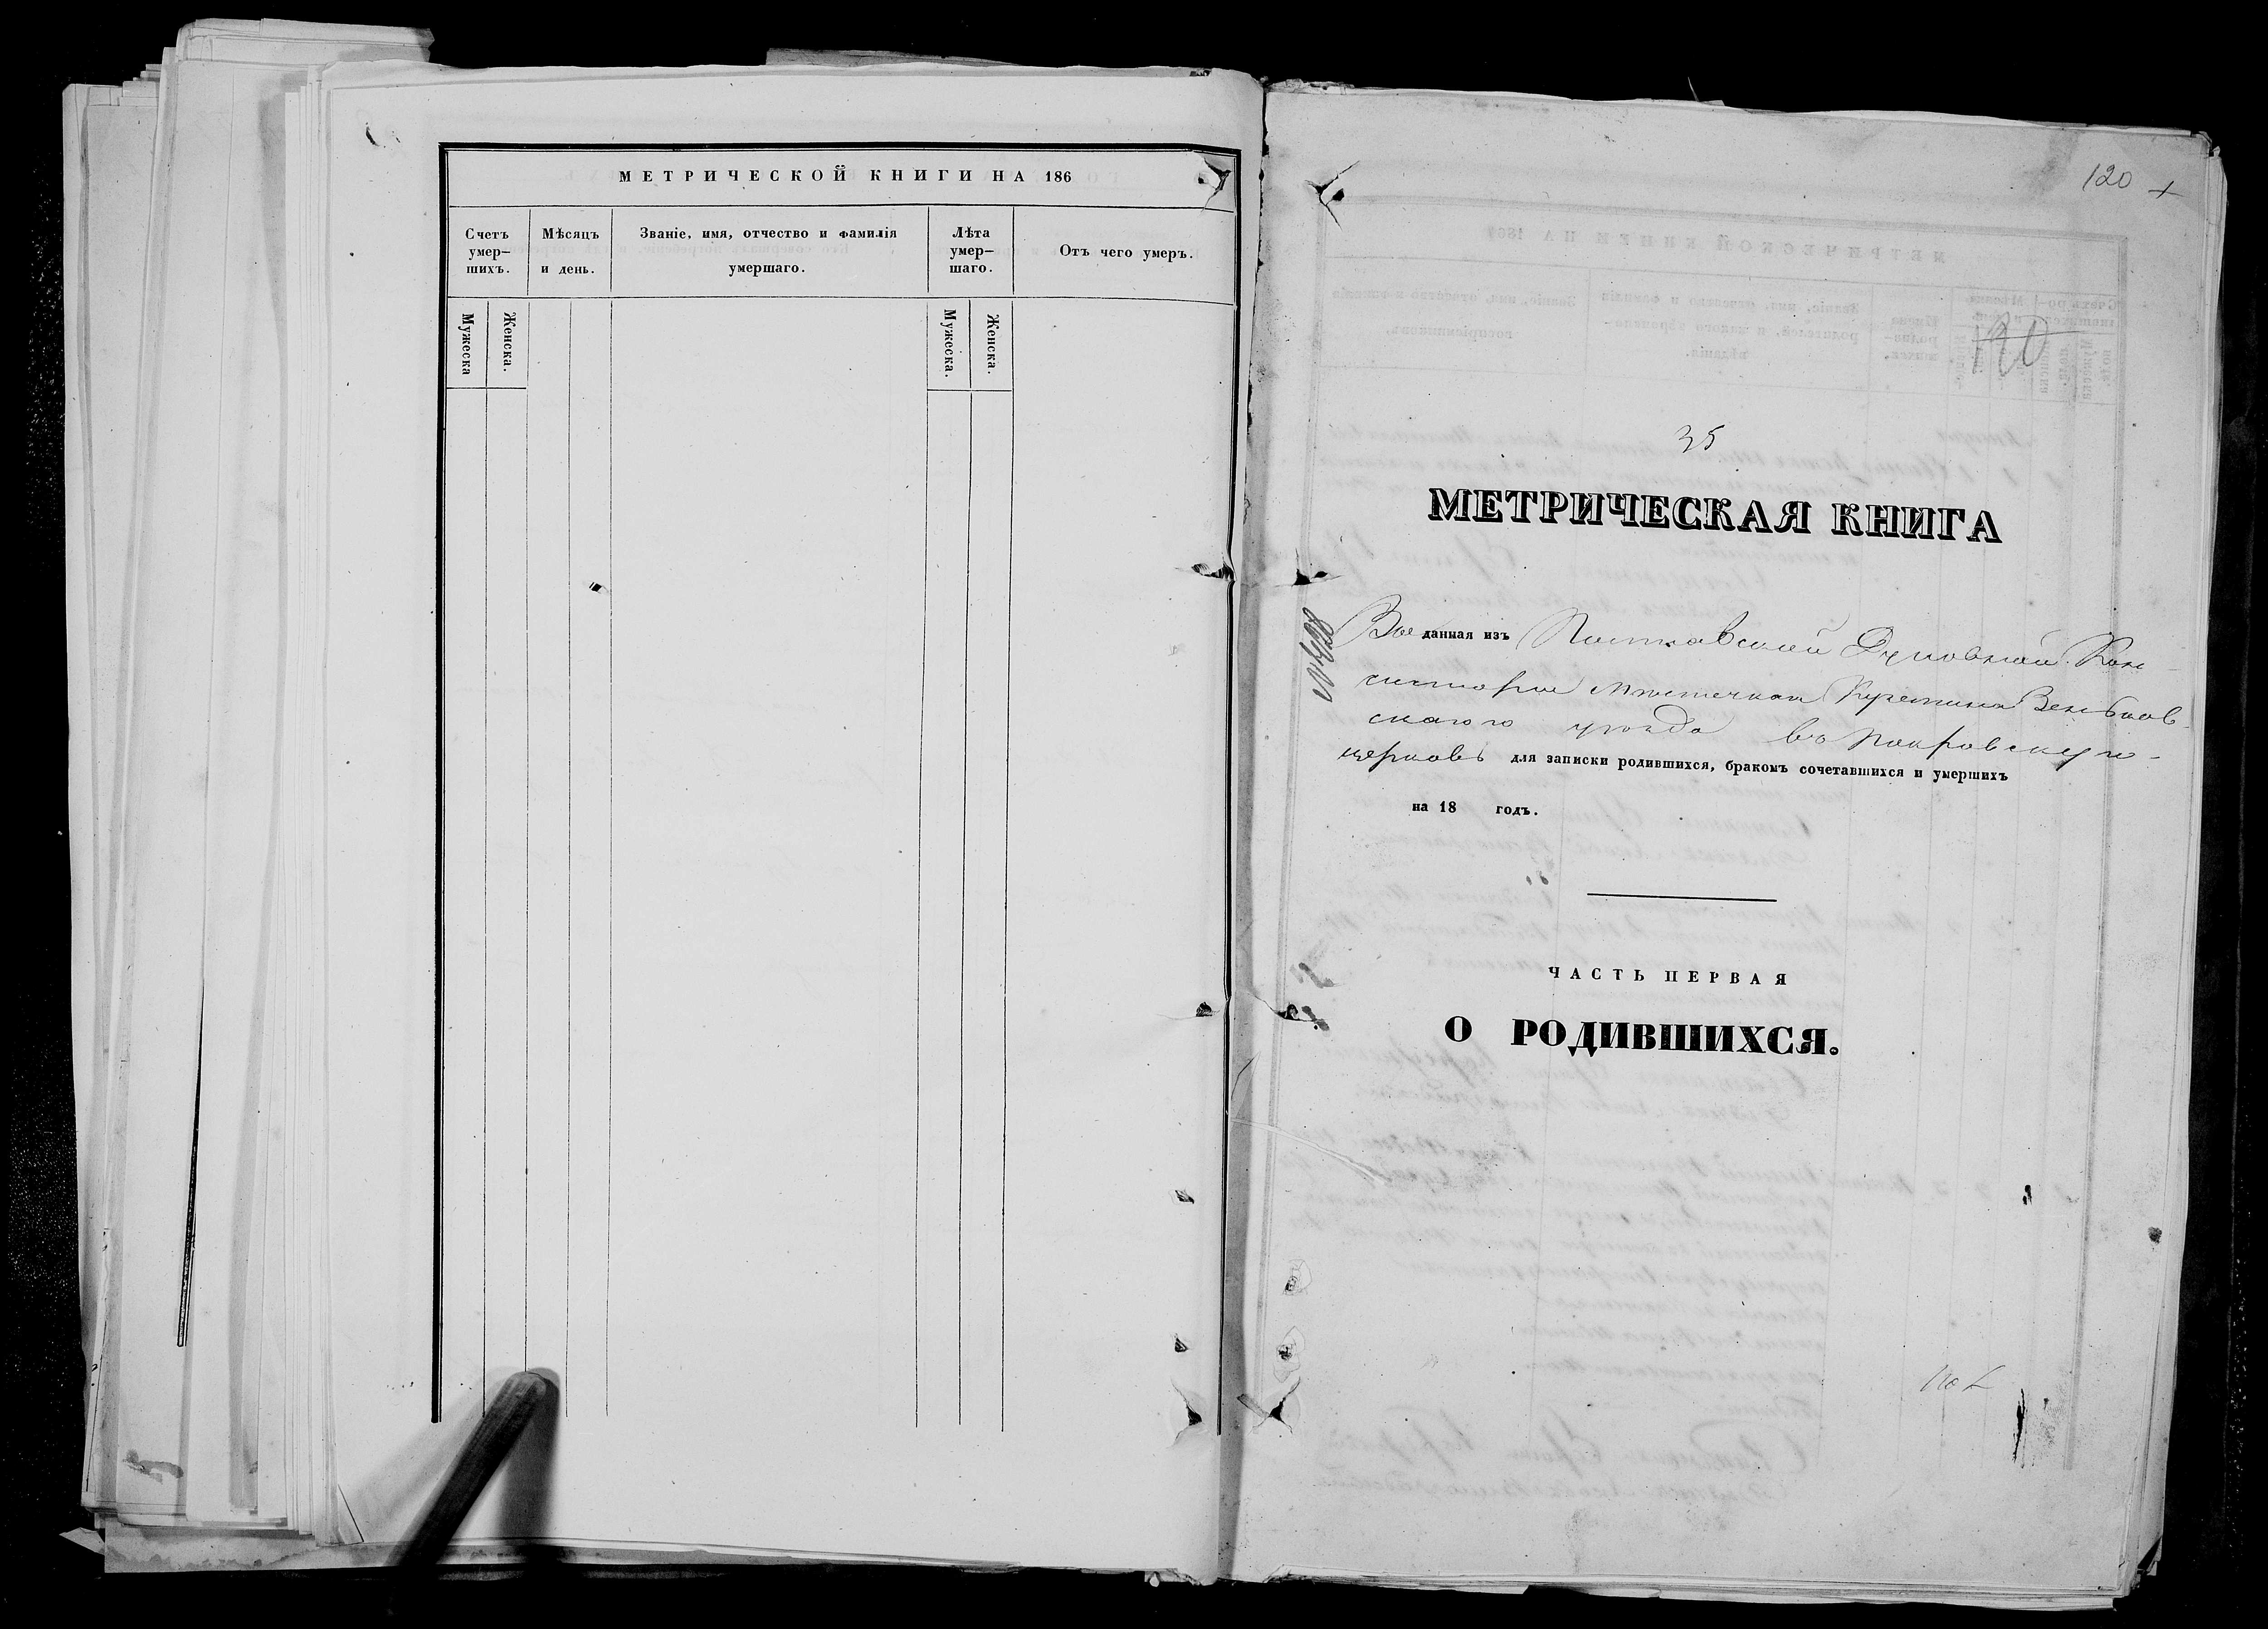 МЕТРИЧЕСКОЙ КНИГИ НА 186
Счетъ умер-
шихъ.
Мѣсяцъ
и день.
Званіе, имя, отчество и фамилія
умершаго.
Лѣта
умер-
шаго.
Отъ чего умеръ.
Мужеска
Женска.
Мужеска.
Женска.
120
35
МЕТРИЧЕСКАЯ КНИГА
данная изъ Полтавской Духовной Кон-
систоріи мѣстечка Куземина Зеньков-
скаго уѣзда въ Покровскую
церковь для записки родившихся, бракомъ сочетавшихся и умершихъ
на 18 годъ.
ЧАСТЬ ПЕРВАЯ
О РОДИВШИХСЯ.